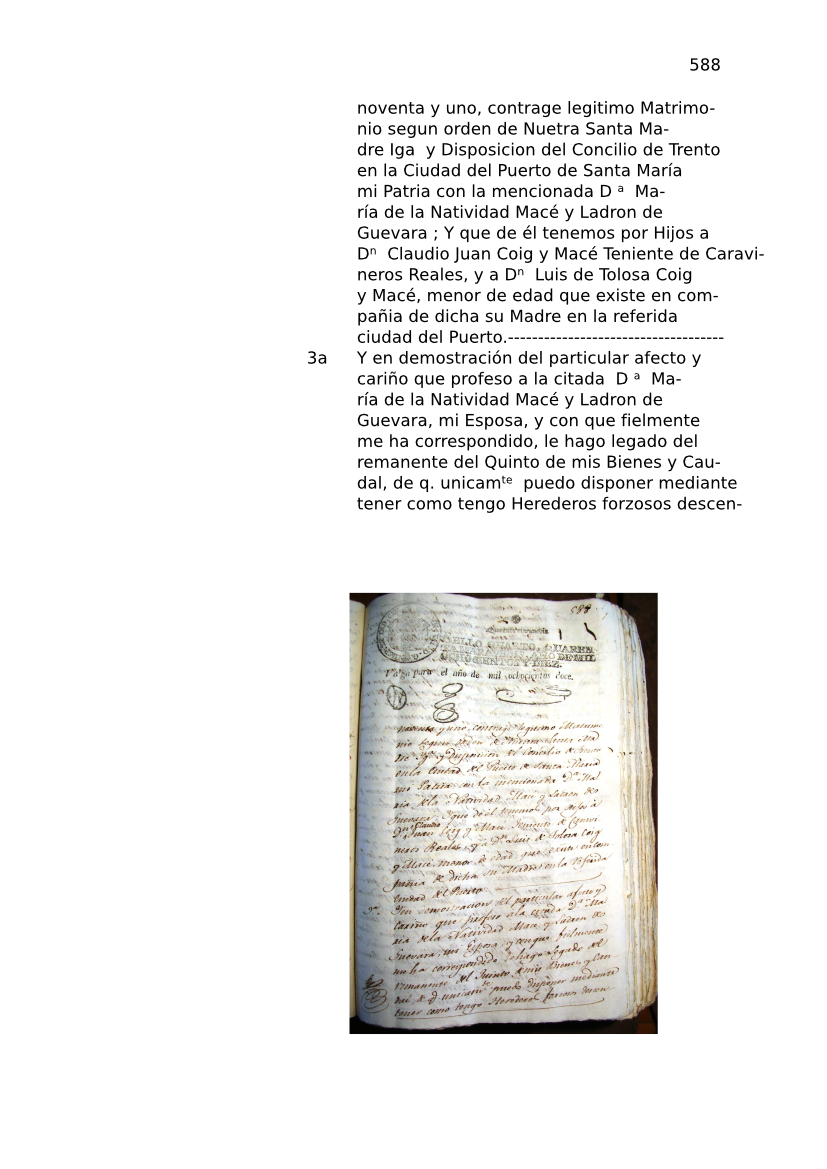 588
noventa y uno, contrage legitimo Matrimo-
nio segun orden de Nuetra Santa Ma-
dre Iga y Disposicion del Concilio de Trento
en la Ciudad del Puerto de Santa María
mi Patria con la mencionada D ª Ma-
ría de la Natividad Macé y Ladron de
Guevara ; Y que de él tenemos por Hijos a
Dⁿ Claudio Juan Coig y Macé Teniente de Caravi-
neros Reales, y a Dⁿ Luis de Tolosa Coig
y Macé, menor de edad que existe en com-
pañia de dicha su Madre en la referida
ciudad del Puerto.------------------------------------
3a Y en demostración del particular afecto y
cariño que profeso a la citada D ª Ma-
ría de la Natividad Macé y Ladron de
Guevara, mi Esposa, y con que fielmente
me ha correspondido, le hago legado del
remanente del Quinto de mis Bienes y Cau-
dal, de q. unicamᵗᵉ puedo disponer mediante
tener como tengo Herederos forzosos descen-
588
SELLO QUARTO, QUAREN
OCHOCIENTOS Y DIEZ.
Valga para el año de mil ochocientos doce.
noventa y uno, contrage legitimo Matrimo
nio segun orden de Nuestra Santa Ma
dre Yga y Disposicion del Concilio de Trento
en la Ciudad del Puerto de Santa Maria
mi Patria con la mencionada Dª Ma
ria de la Natividad Macé y Ladron de
Guevara; Y que de él tenemos por Hijos à
Dⁿ Claudio Juan Coig y Macé Teniente de Caravi
neros Reales, y a Dⁿ Luis de Tolosa Coig
y Macé, menor de edad que existe en com
pañia de dicha su Madre en la referida
Ciudad del Puerto
3ª Y en demostracion del particular afecto y
cariño que profeso a la citada Dª Ma
ria de la Natividad Macé y Ladron de
Guevara, mi Esposa, y con que fielmente
me ha correspondido, le hago legado del
remanente del Quinto de mis Bienes y Cau
dal, de q. unicamᵗᵉ puedo disponer mediante
tener como tengo Herederos forzosos descen